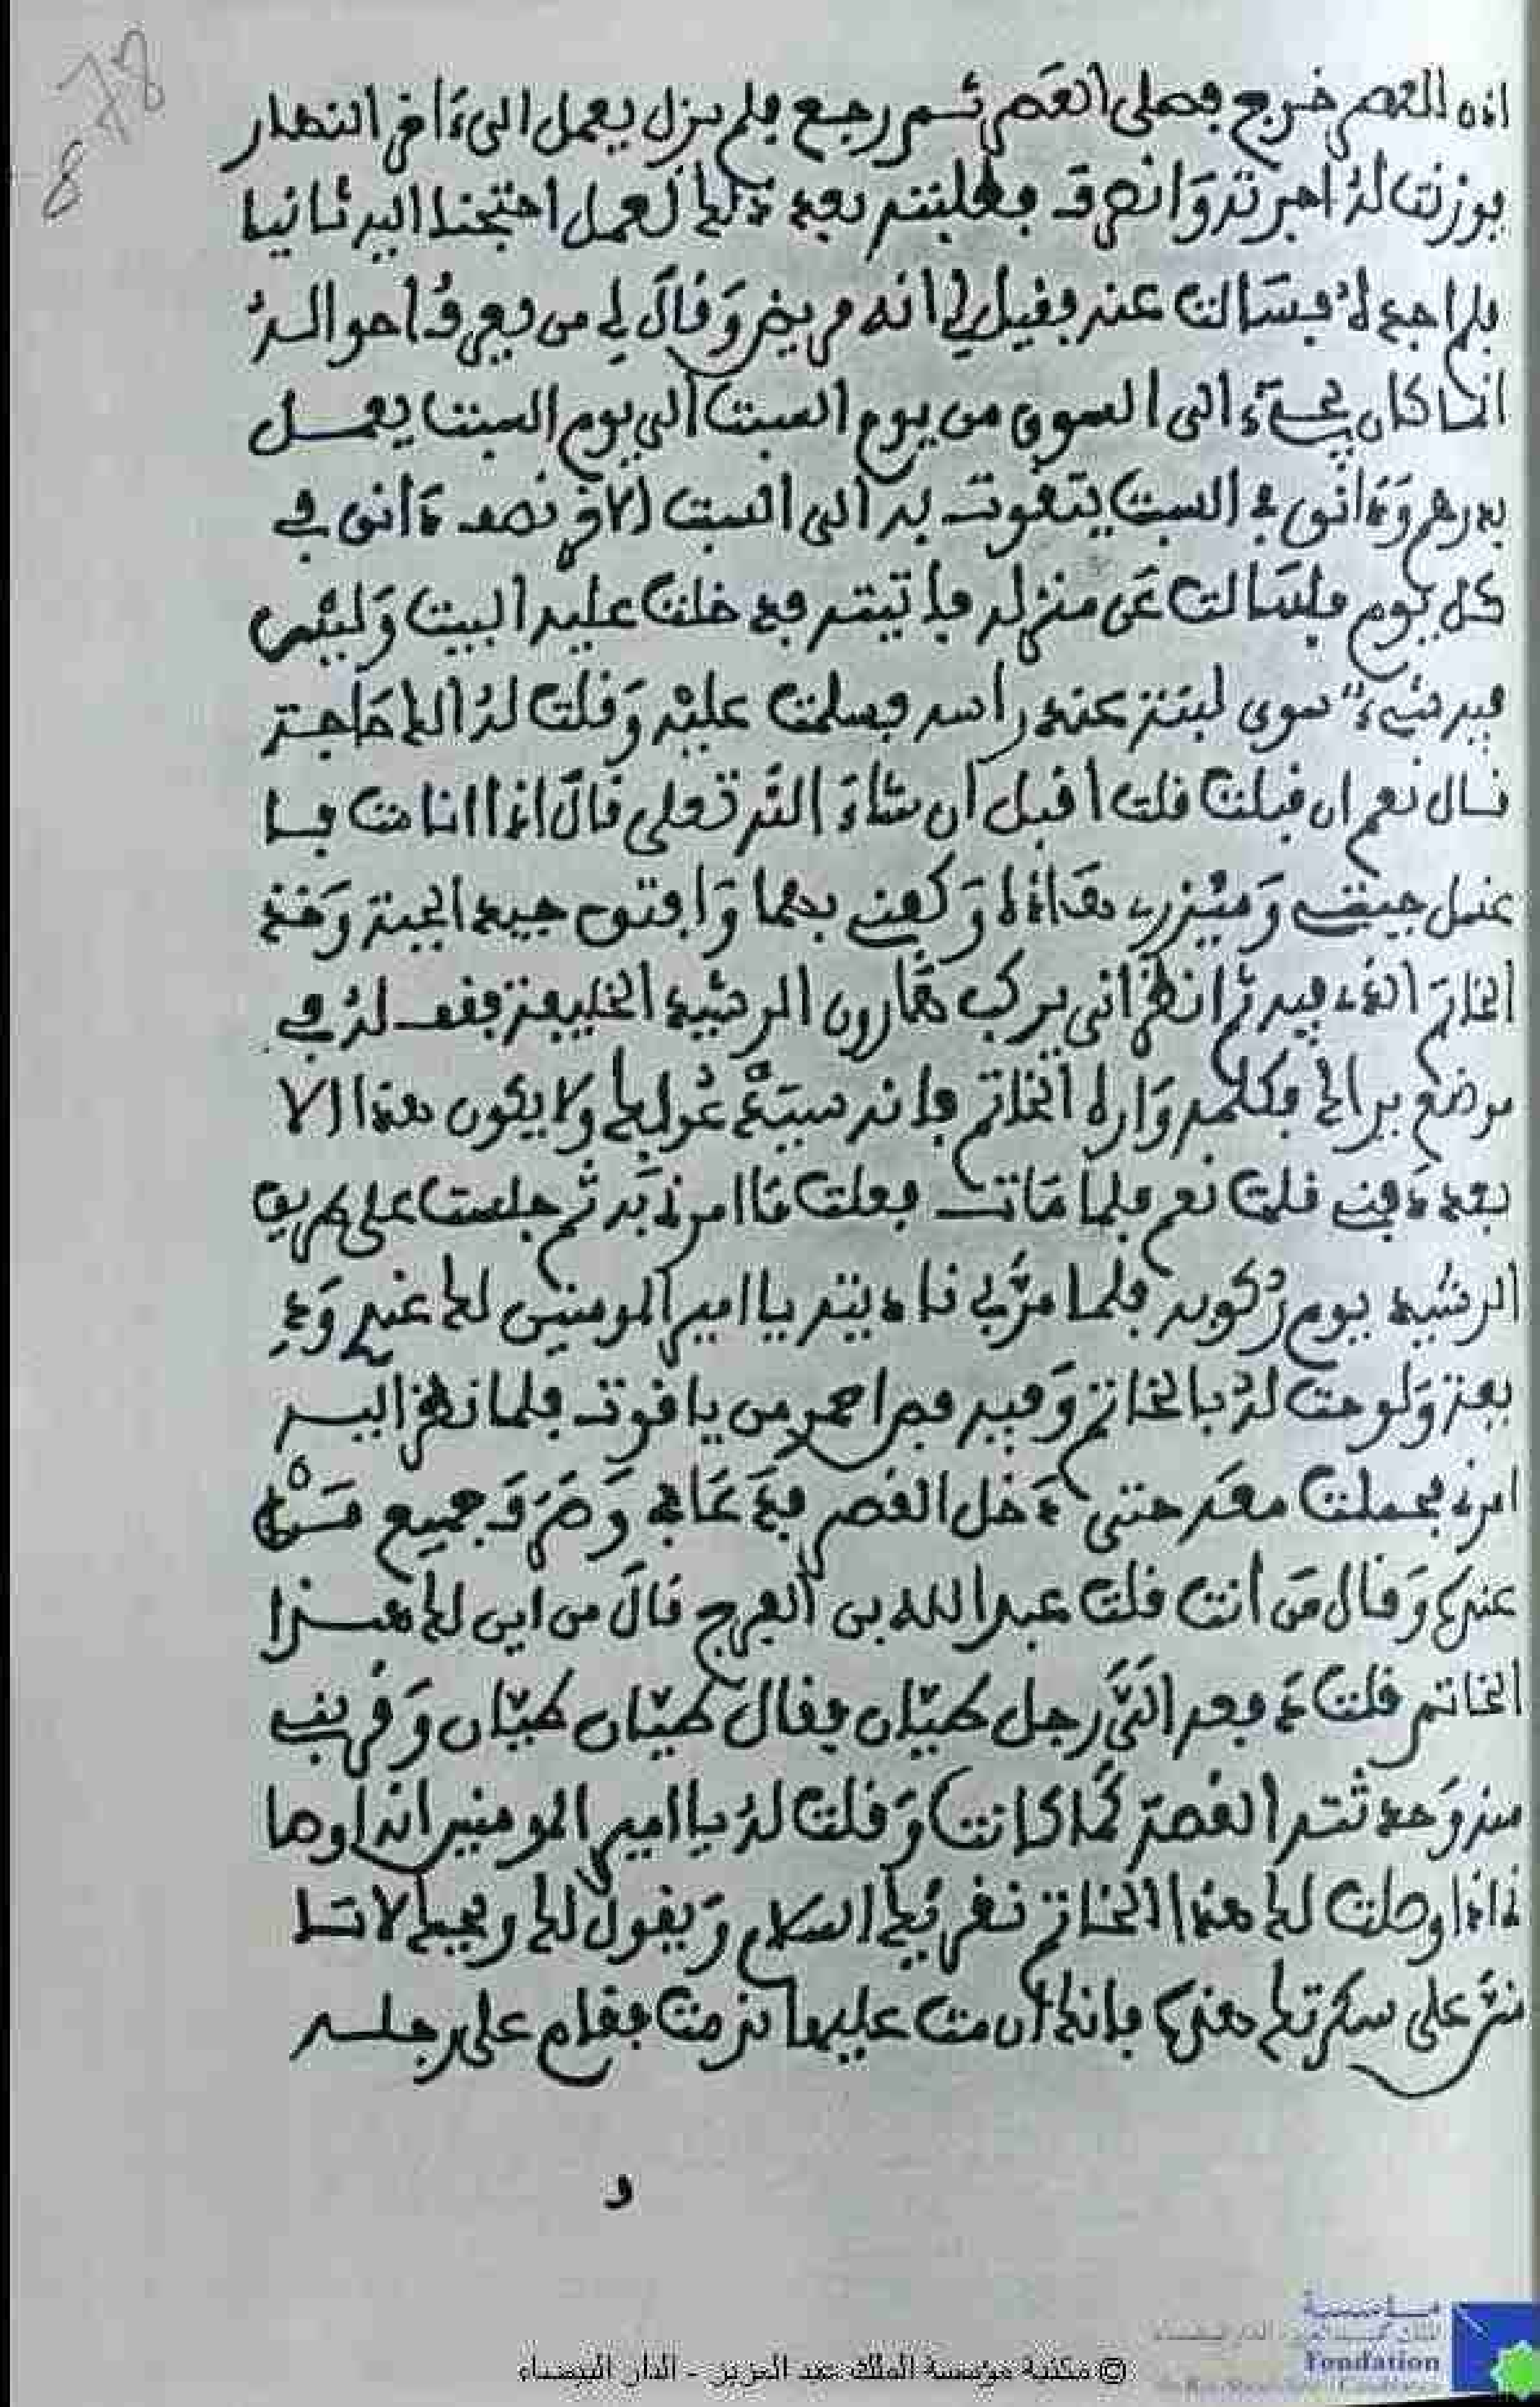 اذن العصر خرج فصلى العصر ثم رجع فلم يزل يعمل الى ءاخر النهار
فوزنت له اجرته وانصرف فطلبته بعد ذلك لعمل احتجنا اليه ثانيا
فلم اجده فسالت عنه فقيل لي انه مريض وقال لي من يعرف احواله
انما كان يجيء الى السوق من يوم السبت الى يوم السبت يعمل
بدرهم ودانق في السبت يتقوت به الى السبت الاخر نصف دانق في
كل يوم فلسالت عن منزله فاتيته فدخلت عليه البيت وليس
فيه شيء سوى لبنة عند راسه فسلمت عليه وقلت له الك حاجة
قال نعم ان قبلت قلت اقبل ان شاء الله تعلى قال اذا انا مت فا
غسل جبتي وميزري هذا وكفني بهما وافتق جيب الجبة وخذ
الخاتم الذي فيه ثم انظر اني يركب هارون الرشيد الخليفة فقف له في
موضع يراك فكلمه واره الخاتم فانه سيدعو لك ولا يكون هذا الا
بعد دفني قلت نعم فلما مات فعلت ما امرني به ثم جلست على طريق
الرشيد يوم ركوبه فلما مر بي ناديته يا امير المومنين لك عندي ود
يعة ولوحت له بالخاتم وفيه فص احمر من ياقوت فلما نظر اليه
امر بي فحملت معه حتى دخل القصر فدعاني وصرف جميع من
عنده وقال من انت قلت عبد الله بن الفرج قال من اين لك هذا
الخاتم قلت دفعه الي رجل طيان فقال طيان طيان وقربني
منه وحدثته القصة كما كانت وقلت له يا امير المومنين انه اوصا
ني اذا اوصلت لك هذا الخاتم نقرئك السلام ويقول لك ويحك لا تمو
تن على سكرتك هذه فانك ان مت عليها ندمت فقام على رجليه
و
© مكتبة مؤسسة الملك عبد العزيز - الدار البيضاء
مؤسسة
Fondation